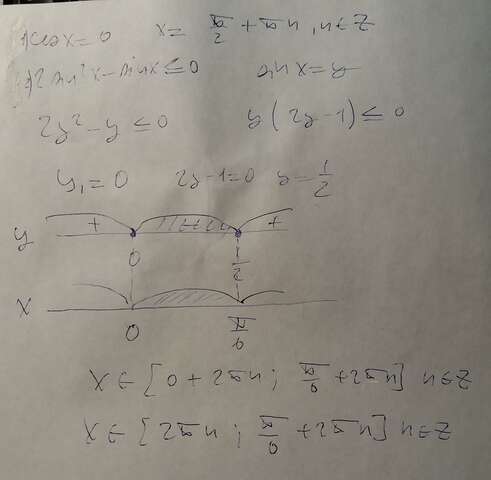 1) cos x = 0   x = π/2 + πn, n∈Z
1) 2 sin²x - sin x ≤ 0   sin x = y
2y² - y ≤ 0   y(2y-1) ≤ 0
y₁ = 0   2y-1=0   y = 1/2
y + +
0 1/2
x
0 π/6
x ∈ [0 + 2πn ; π/6 + 2πn] n∈Z
x ∈ [2πn ; π/6 + 2πn] n∈Z